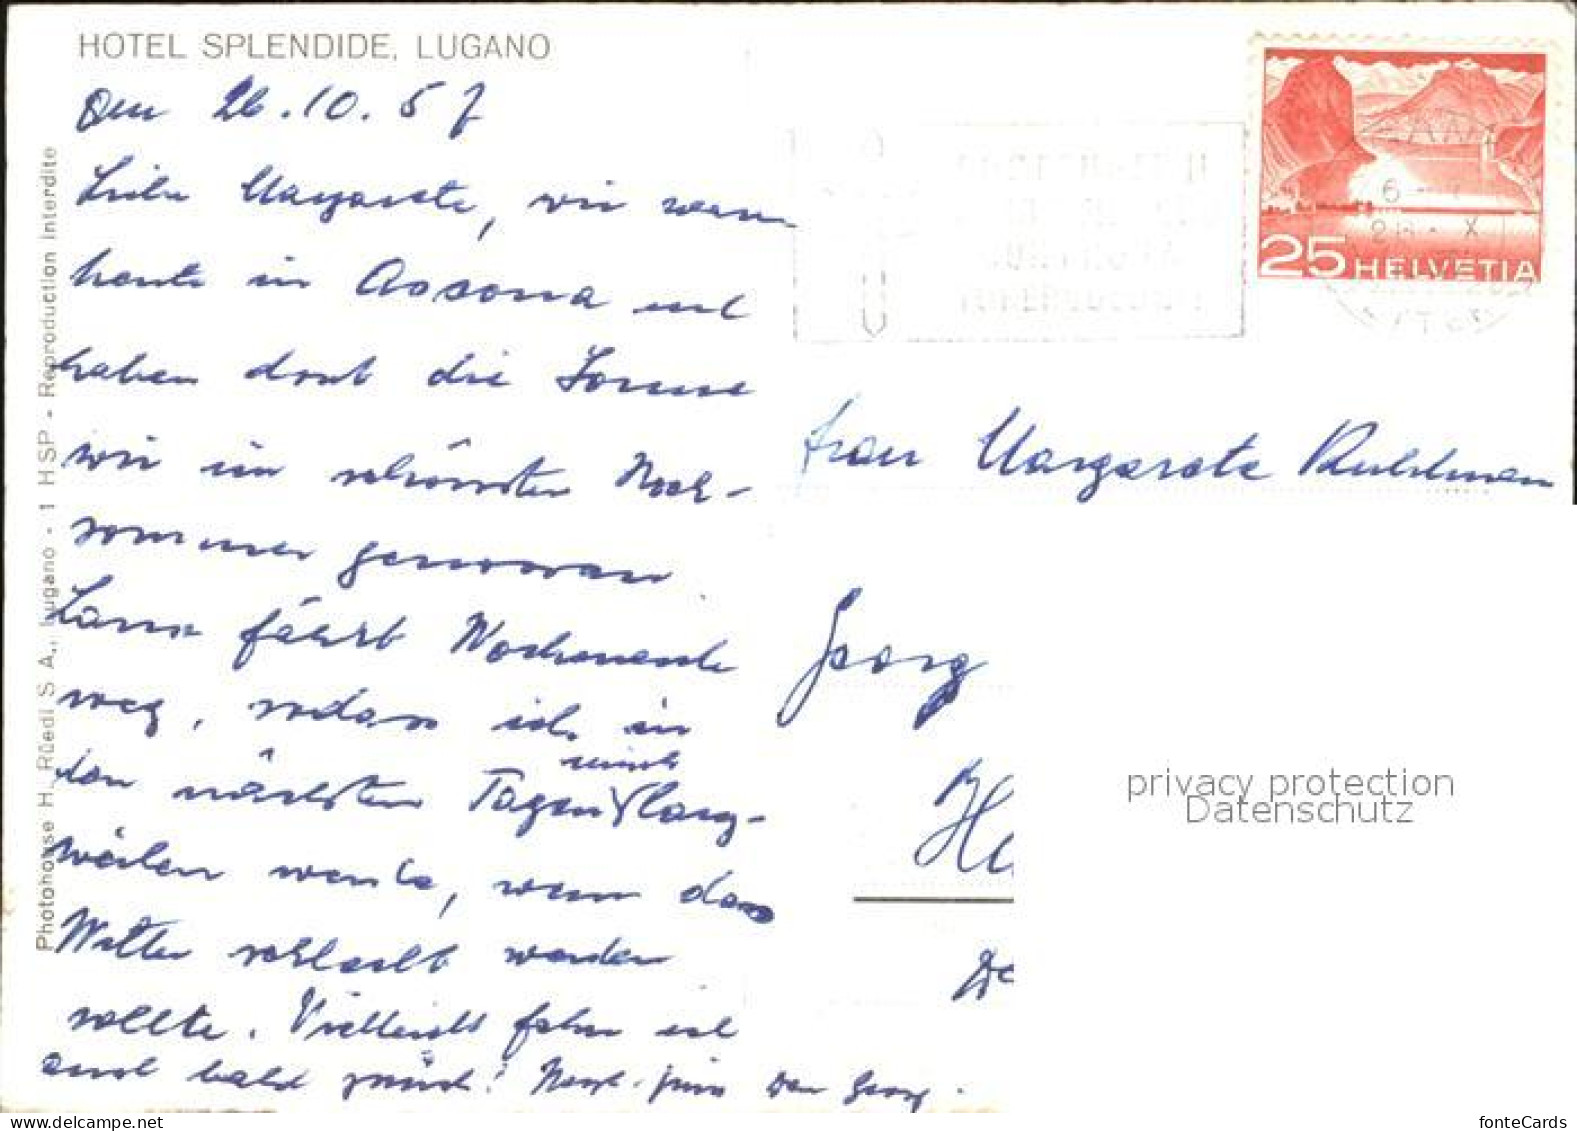 HOTEL SPLENDIDE, LUGANO
Den 26.10.57
Liebe Margarete, wir waren
heute in Ascona und
haben dort die Sonne
wie im schönsten Hoch-
sommer genossen.
fährt Wochenende
weg, sodass ich in
den nächsten Tagen mich lang-
weilen werde, wenn das
Wetter schlecht werden
sollte. Vielleicht fahre ich
auch bald zurück! Dein Georg.
Photohouse H. Rüedi S A., Lugano - 1 HSP - Reproduction interdite
25 HELVETIA
Frau Margarete
Georg
privacy protection
Datenschutz
www.delcampe.net
fonteCards